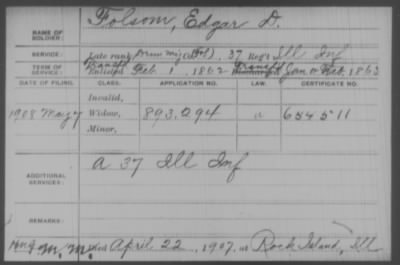 NAME OF SOLDIER: Folsom, Edgar D.
SERVICE: Late rank, Drum Maj. 37 Reg't Ill Inf
TERM OF SERVICE: Enlisted Feb. 1, 1862 Discharged Jan. or Feb. 1863
DATE OF FILING. CLASS. APPLICATION NO. LAW. CERTIFICATE NO.
Invalid,
1908 May 7 Widow, 893,294 654511
Minor,
ADDITIONAL SERVICES: A 37 Ill Inf
REMARKS:
Died April 22, 1907, at Rock Island, Ill